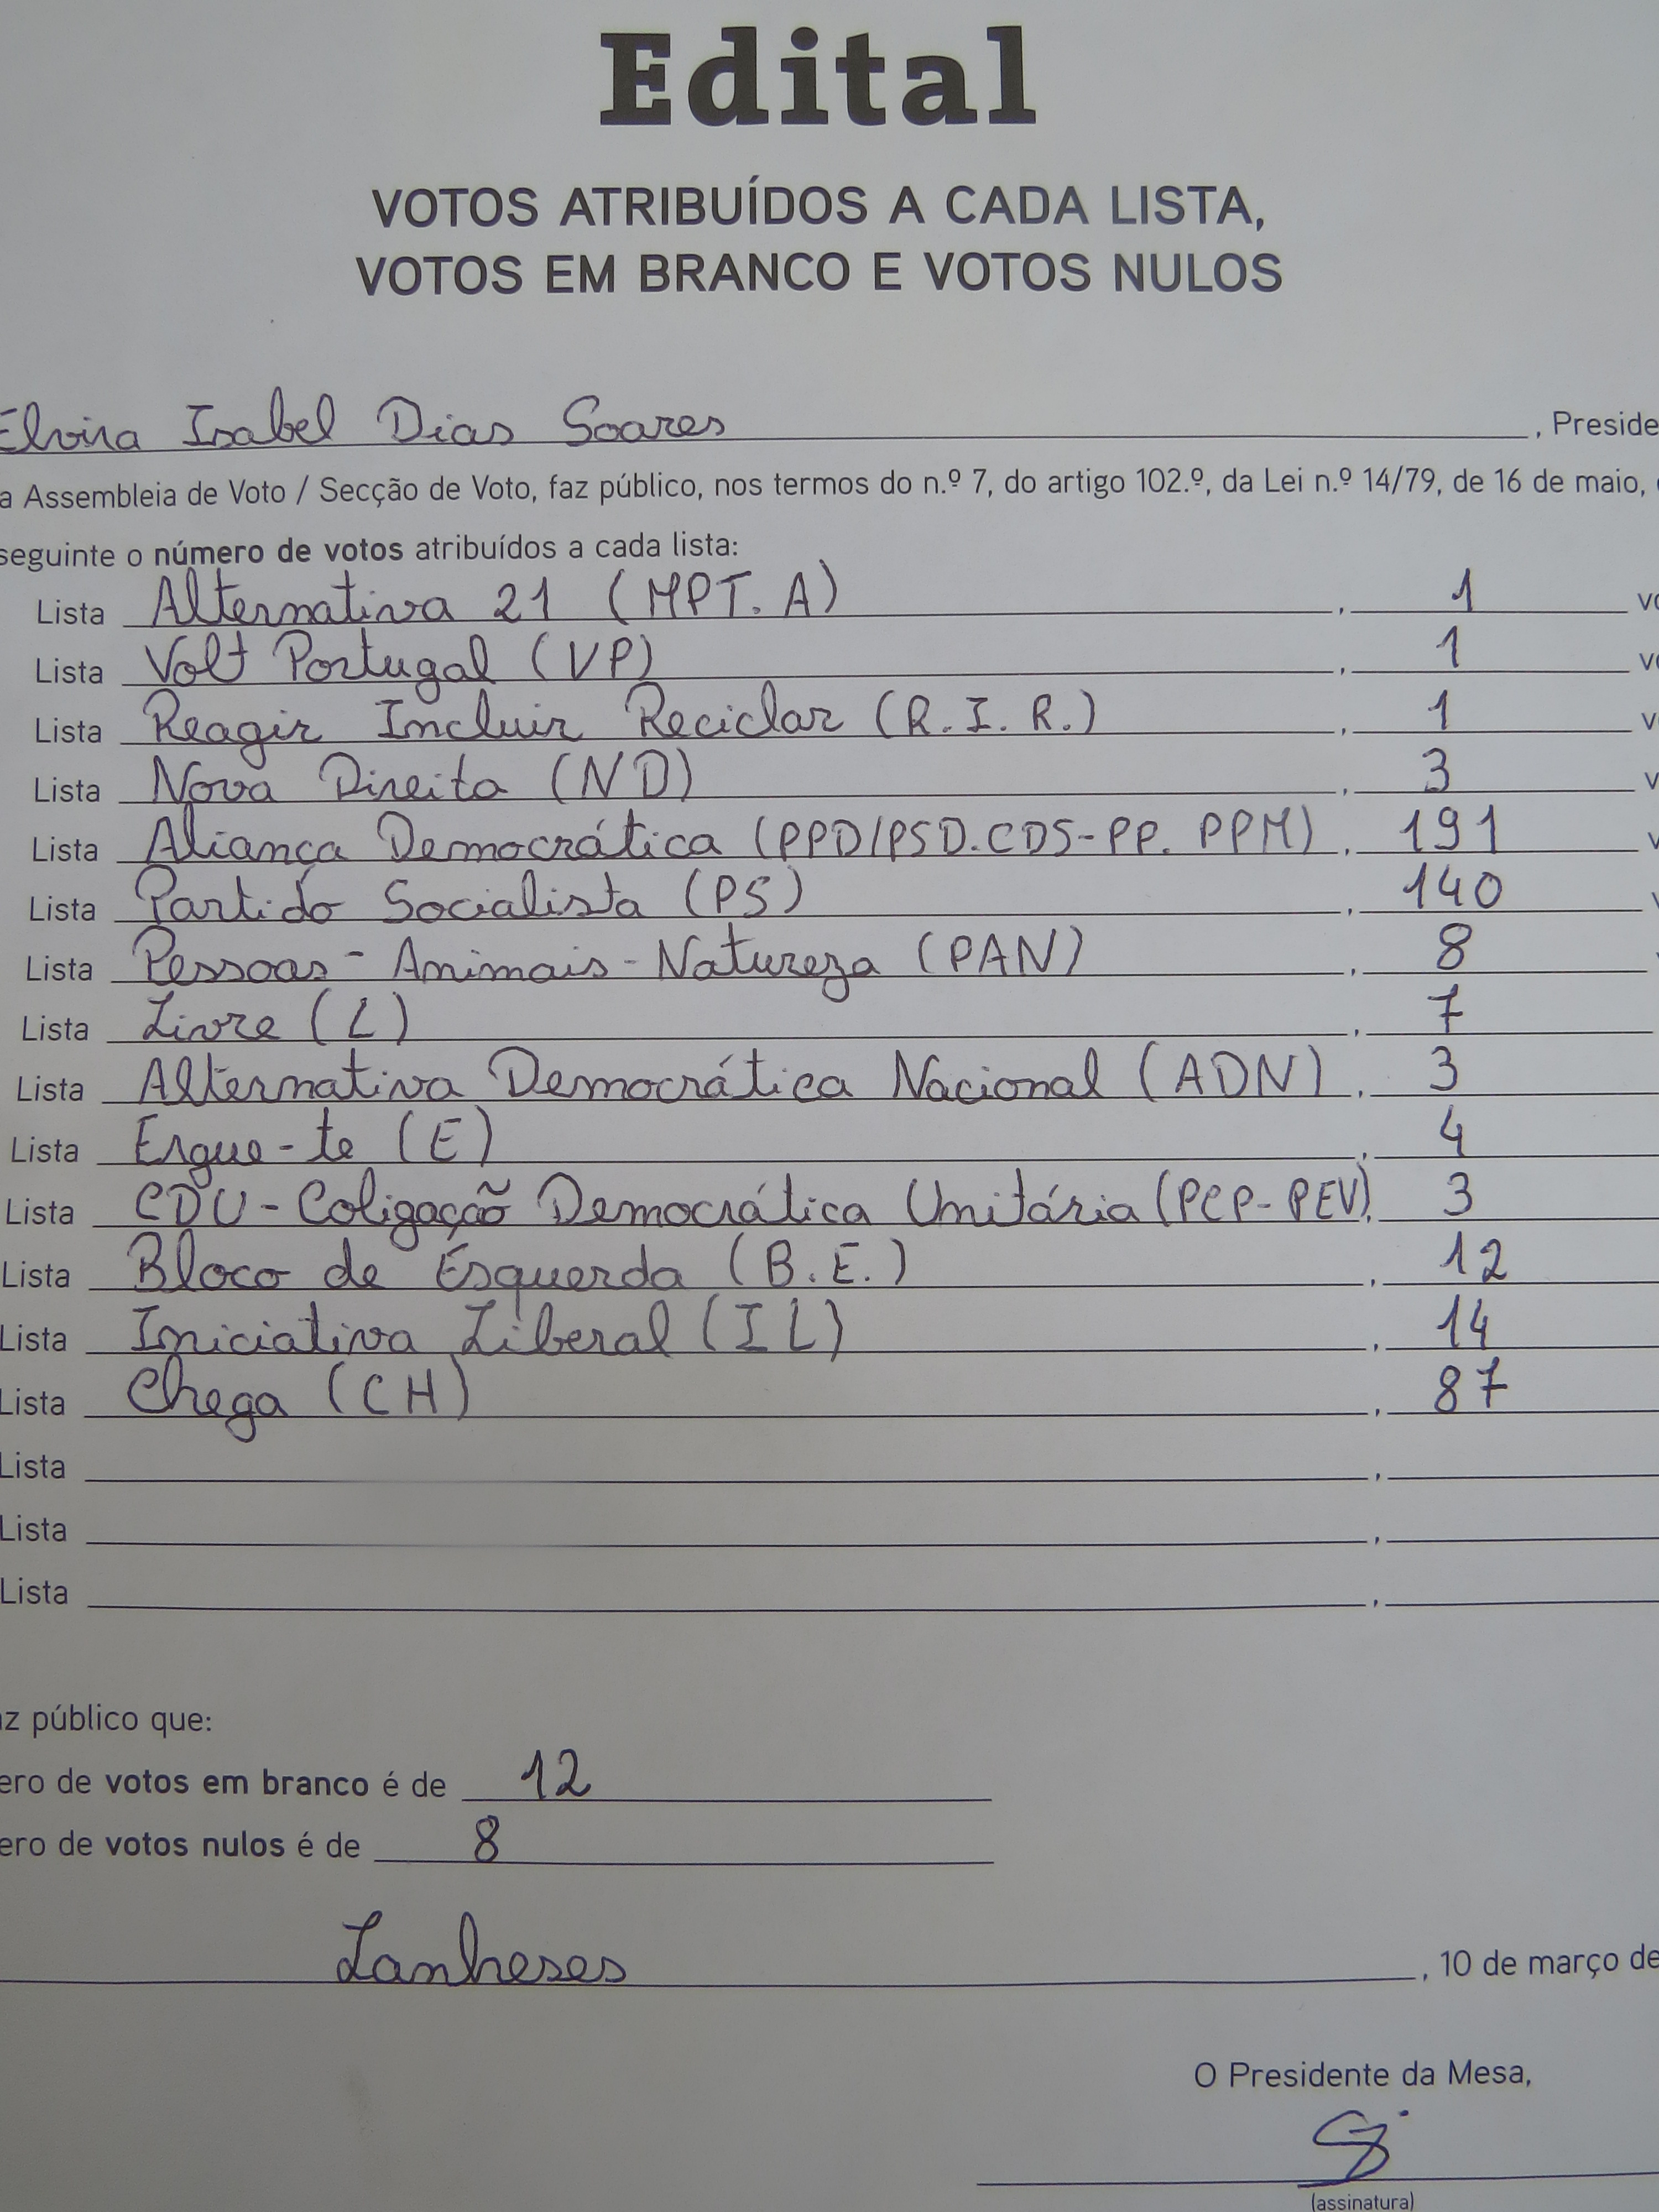 Edital
VOTOS ATRIBUÍDOS A CADA LISTA,
VOTOS EM BRANCO E VOTOS NULOS
Elvira Isabel Dias Soares , Preside
a Assembleia de Voto / Secção de Voto, faz público, nos termos do n.º 7, do artigo 102.º, da Lei n.º 14/79, de 16 de maio,
seguinte o número de votos atribuídos a cada lista:
Lista Alternativa 21 (MPT. A) , 1 vo
Lista Volt Portugal (VP) , 1 vo
Lista Reagir Incluir Reciclar (R.I.R.) , 1 v
Lista Nova Direita (ND) , 3 v
Lista Aliança Democrática (PPD/PSD.CDS-PP. PPM) , 191 v
Lista Partido Socialista (PS) , 140 v
Lista Pessoas - Animais - Natureza (PAN) , 8
Lista Livre (L) , 7
Lista Alternativa Democrática Nacional (ADN) , 3
Lista Ergue-te (E) , 4
Lista CDU - Coligação Democrática Unitária (PCP-PEV) , 3
Lista Bloco de Esquerda (B.E.) , 12
Lista Iniciativa Liberal (IL) , 14
Lista Chega (CH) , 87
Lista ,
Lista ,
Lista ,
az público que:
ero de votos em branco é de 12
ero de votos nulos é de 8
Lanheses , 10 de março de
O Presidente da Mesa,
(assinatura)